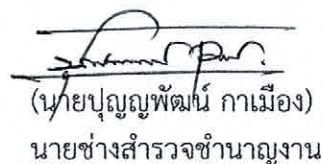 (นายปุญญพัฒน์ กาเมือง)
นายช่างสำรวจชำนาญงาน